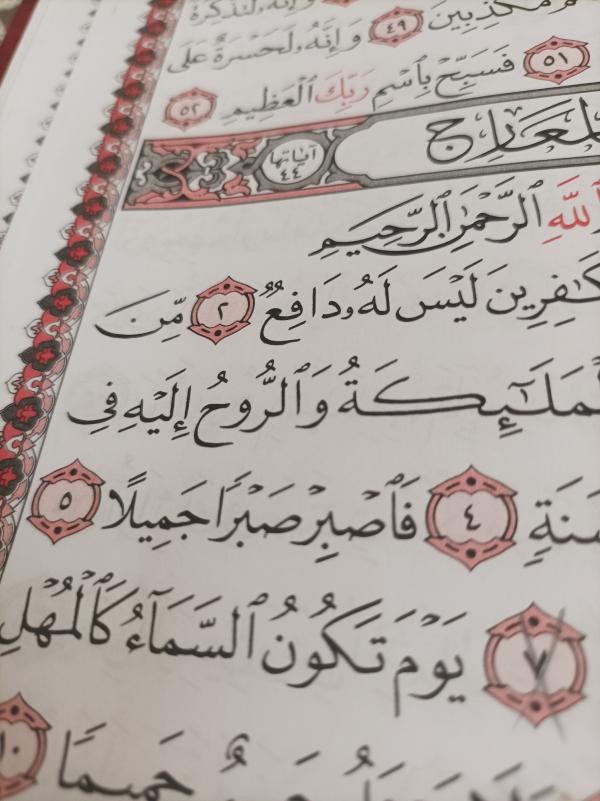 مُّكَذِّبِينَ ٤٩ وَإِنَّهُۥ لَحَسْرَةٌ عَلَى
٥١ فَسَبِّحْ بِٱسْمِ رَبِّكَ ٱلْعَظِيمِ ٥٢
لمعارج آياتها ٤٤
ٱللَّهِ ٱلرَّحْمَٰنِ ٱلرَّحِيمِ
لَيْسَ لَهُۥ دَافِعٌ ٢ مِّنَ
وَٱلرُّوحُ إِلَيْهِ فِى
٤ فَٱصْبِرْ صَبْرًا جَمِيلًا ٥
٧ يَوْمَ تَكُونُ ٱلسَّمَآءُ كَٱلْمُهْلِ
حَمِيمًا ١٠